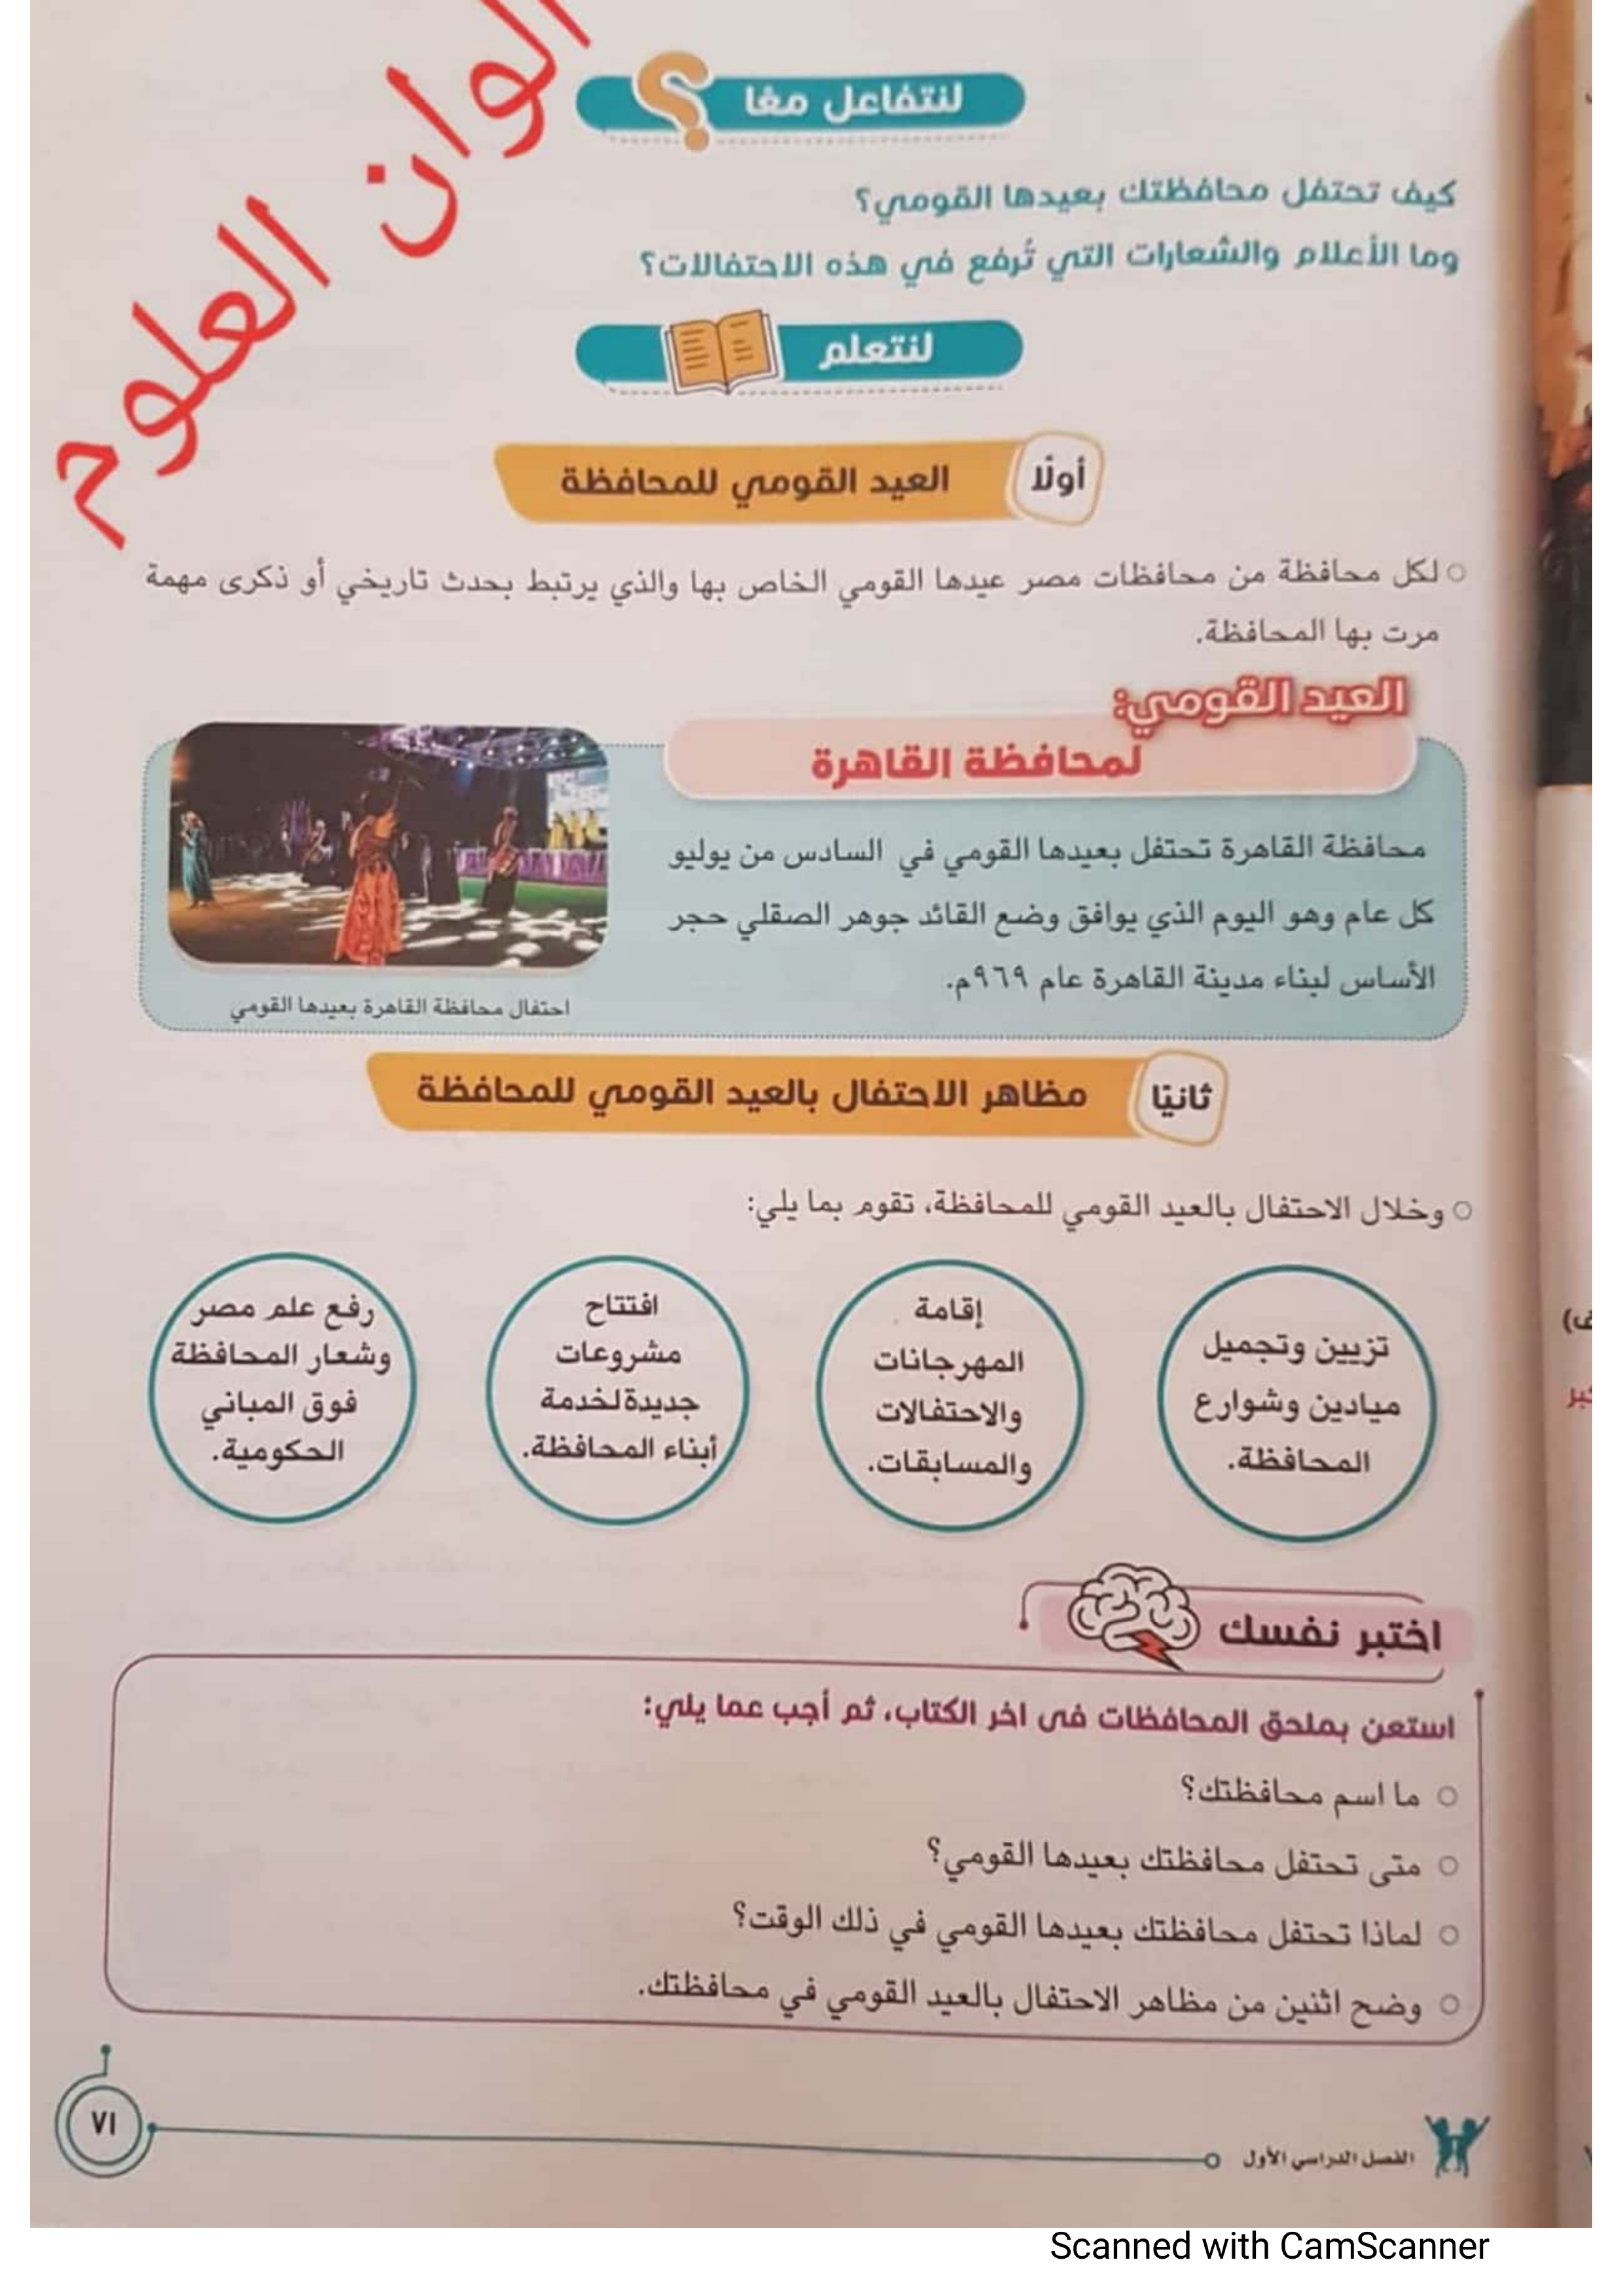 الوان العلوم
لنتفاعل معًا
كيف تحتفل محافظتك بعيدها القومي؟
وما الأعلام والشعارات التي تُرفع في هذه الاحتفالات؟
لنتعلم
أولًا
العيد القومي للمحافظة
لكل محافظة من محافظات مصر عيدها القومي الخاص بها والذي يرتبط بحدث تاريخي أو ذكرى مهمة
مرت بها المحافظة.
العيد القومي:
لمحافظة القاهرة
محافظة القاهرة تحتفل بعيدها القومي في السادس من يوليو
كل عام وهو اليوم الذي يوافق وضع القائد جوهر الصقلي حجر
الأساس لبناء مدينة القاهرة عام ٩٦٩م.
احتفال محافظة القاهرة بعيدها القومي
ثانيًا
مظاهر الاحتفال بالعيد القومي للمحافظة
وخلال الاحتفال بالعيد القومي للمحافظة، تقوم بما يلي:
تزيين وتجميل
ميادين وشوارع
المحافظة.
إقامة
المهرجانات
والاحتفالات
والمسابقات.
افتتاح
مشروعات
جديدة لخدمة
أبناء المحافظة.
رفع علم مصر
وشعار المحافظة
فوق المباني
الحكومية.
اختبر نفسك
استعن بملحق المحافظات فى اخر الكتاب، ثم أجب عما يلي:
ما اسم محافظتك؟
متى تحتفل محافظتك بعيدها القومي؟
لماذا تحتفل محافظتك بعيدها القومي في ذلك الوقت؟
وضح اثنين من مظاهر الاحتفال بالعيد القومي في محافظتك.
الفصل الدراسي الأول
٧١
Scanned with CamScanner